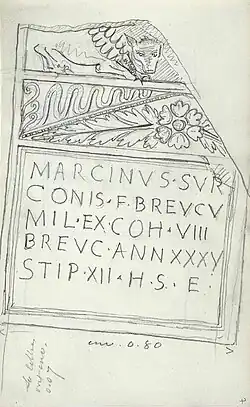 MARCINVS·SVR
CONIS·F·BREVCV
MIL·EX·COH·VIII
BREVC·ANNXXXV
STIP·XII·H·S·E·
0.80